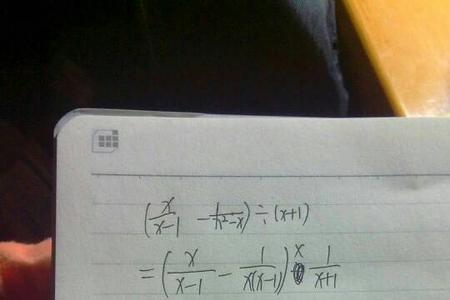 (x/(x-1) - 1/(x²-x)) ÷ (x+1)
= (x/(x-1) - 1/(x(x-1))) × 1/(x+1)